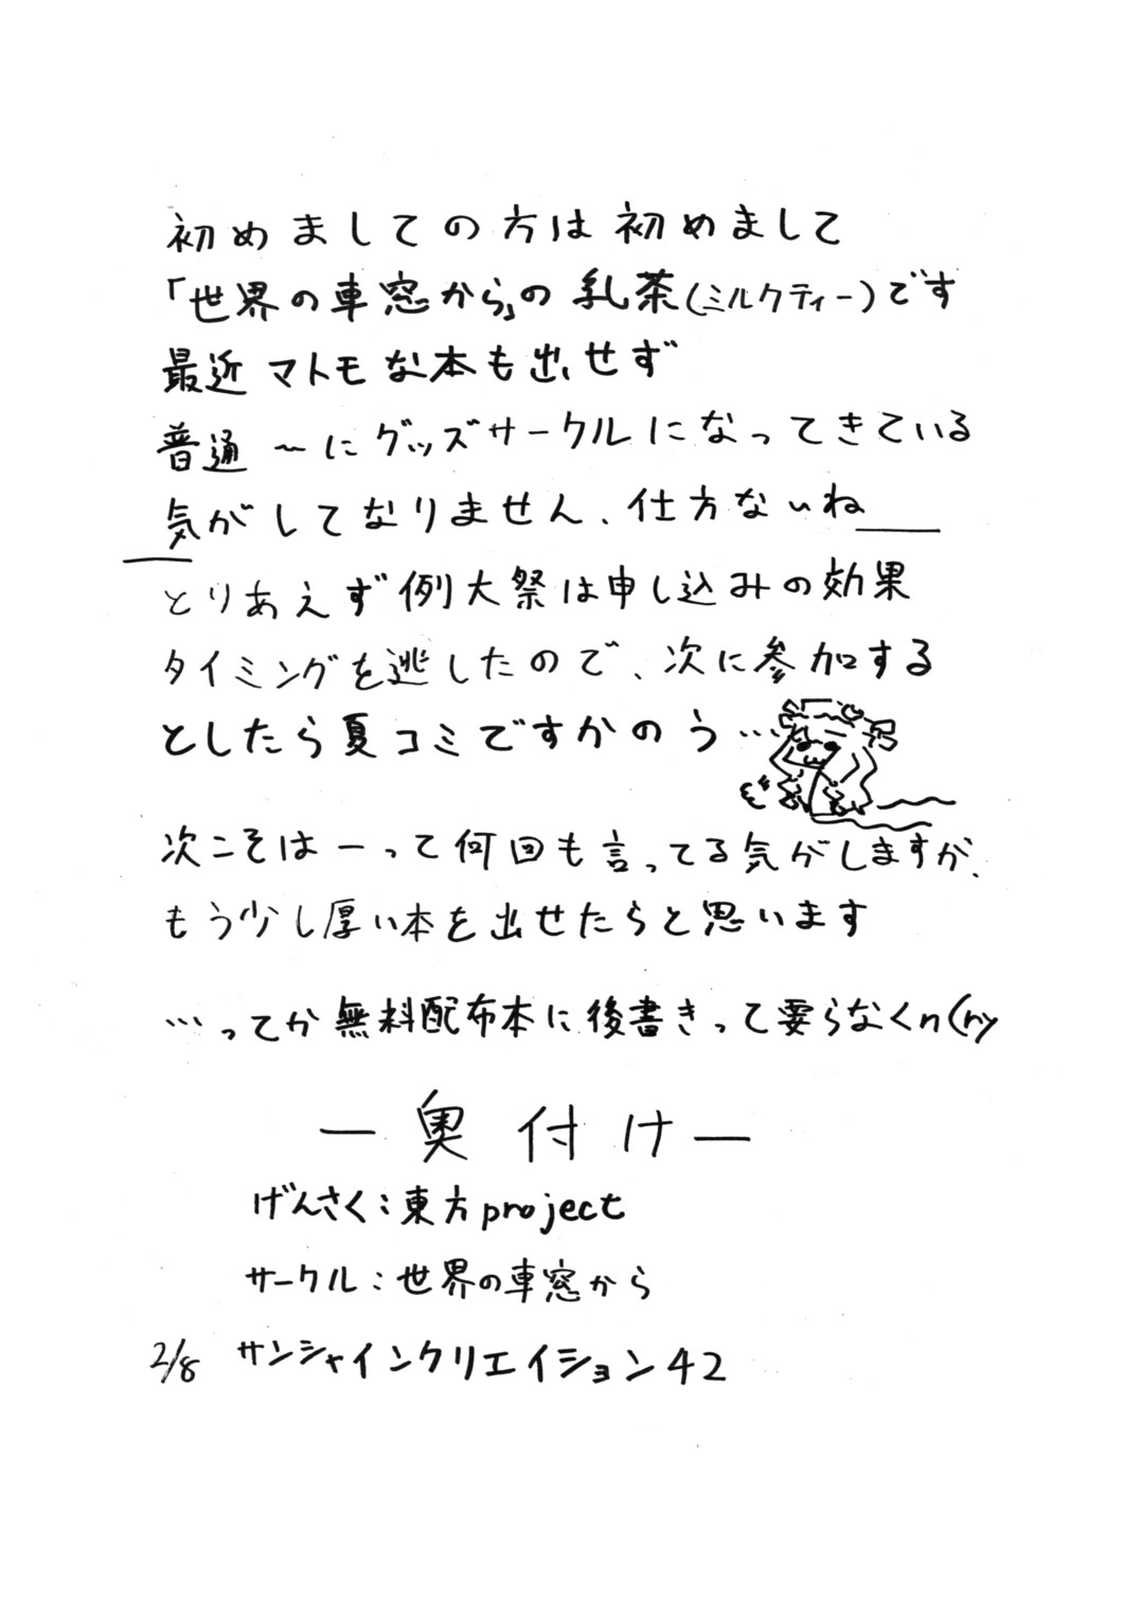 初めましての方は初めまして
「世界の車窓から」の乳茶(ミルクティー)です
最近マトモな本も出せず
普通〜にグッズサークルになってきている
気がしてなりません、仕方ないね
とりあえず例大祭は申し込みの効果
タイミングを逃したので、次に参加する
としたら夏コミですかのう…
次こそはーって何回も言ってる気がしますが、
もう少し厚い本を出せたらと思います
…ってか無料配布本に後書きって要らなくn(ry
ー奥付けー
げんさく：東方project
サークル：世界の車窓から
2/8 サンシャインクリエイション42